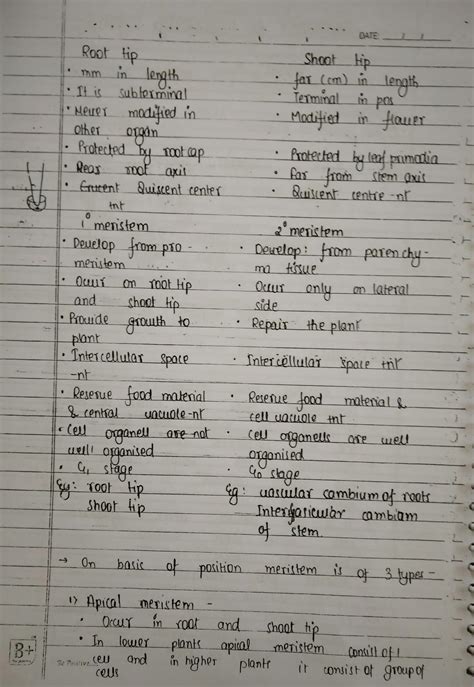 DATE
Root tip
Shoot tip
• mm in length
• far (cm) in length
• It is subterminal
• Terminal in pos
• Never modified in
other organ
• Modified in flower
• Protected by root cap
• Protected by leaf primodia
• root axis
• far from stem axis
• Quiscent center
tnt
• Quiscent centre -nt
1° meristem
2° meristem
• Develop from pro -
meristem
• Develop : from parenchy-
ma tissue
• Occur on root tip
and shoot tip
• Occur only on lateral
side
• Provide growth to
plant
• Repair the plant
• Intercellular space
-nt
• Intercellular space tnt
• Reserve food material
& central vacuole-nt
• Reserve food material &
cell vacuole tnt
• Cell organell are not
well organised
• Cell organells are well
organised
• G1 stage
• G0 stage
Eg: root tip
shoot tip
Eg: vascular cambium of roots
Interfasicular cambiam
of stem.
→ On basic of position meristem is of 3 types -
1) Apical meristem -
• Occur in root and shoot tip
• In lower plants apical meristem consist of 1
cell and in higher plants it consist of group of
cells
B+